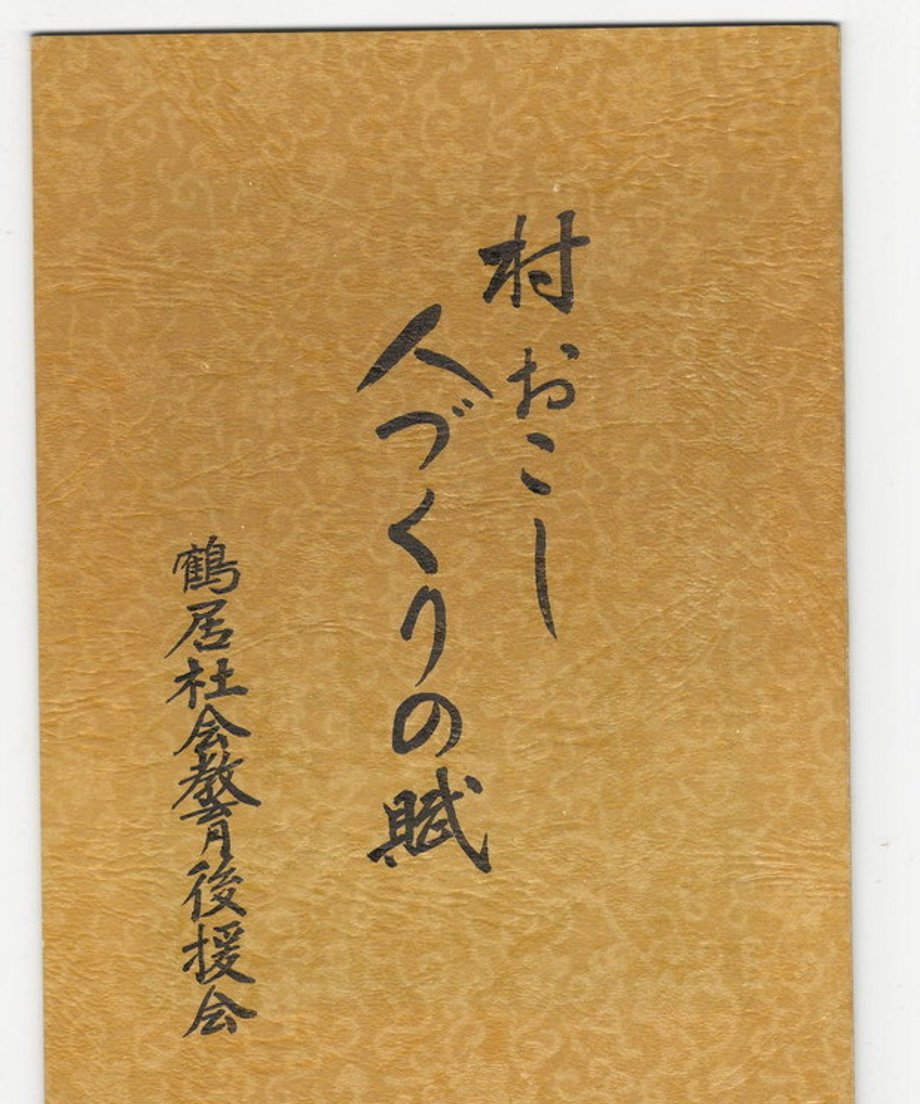 村おこし
人づくりの賦
鶴居社会教育後援会